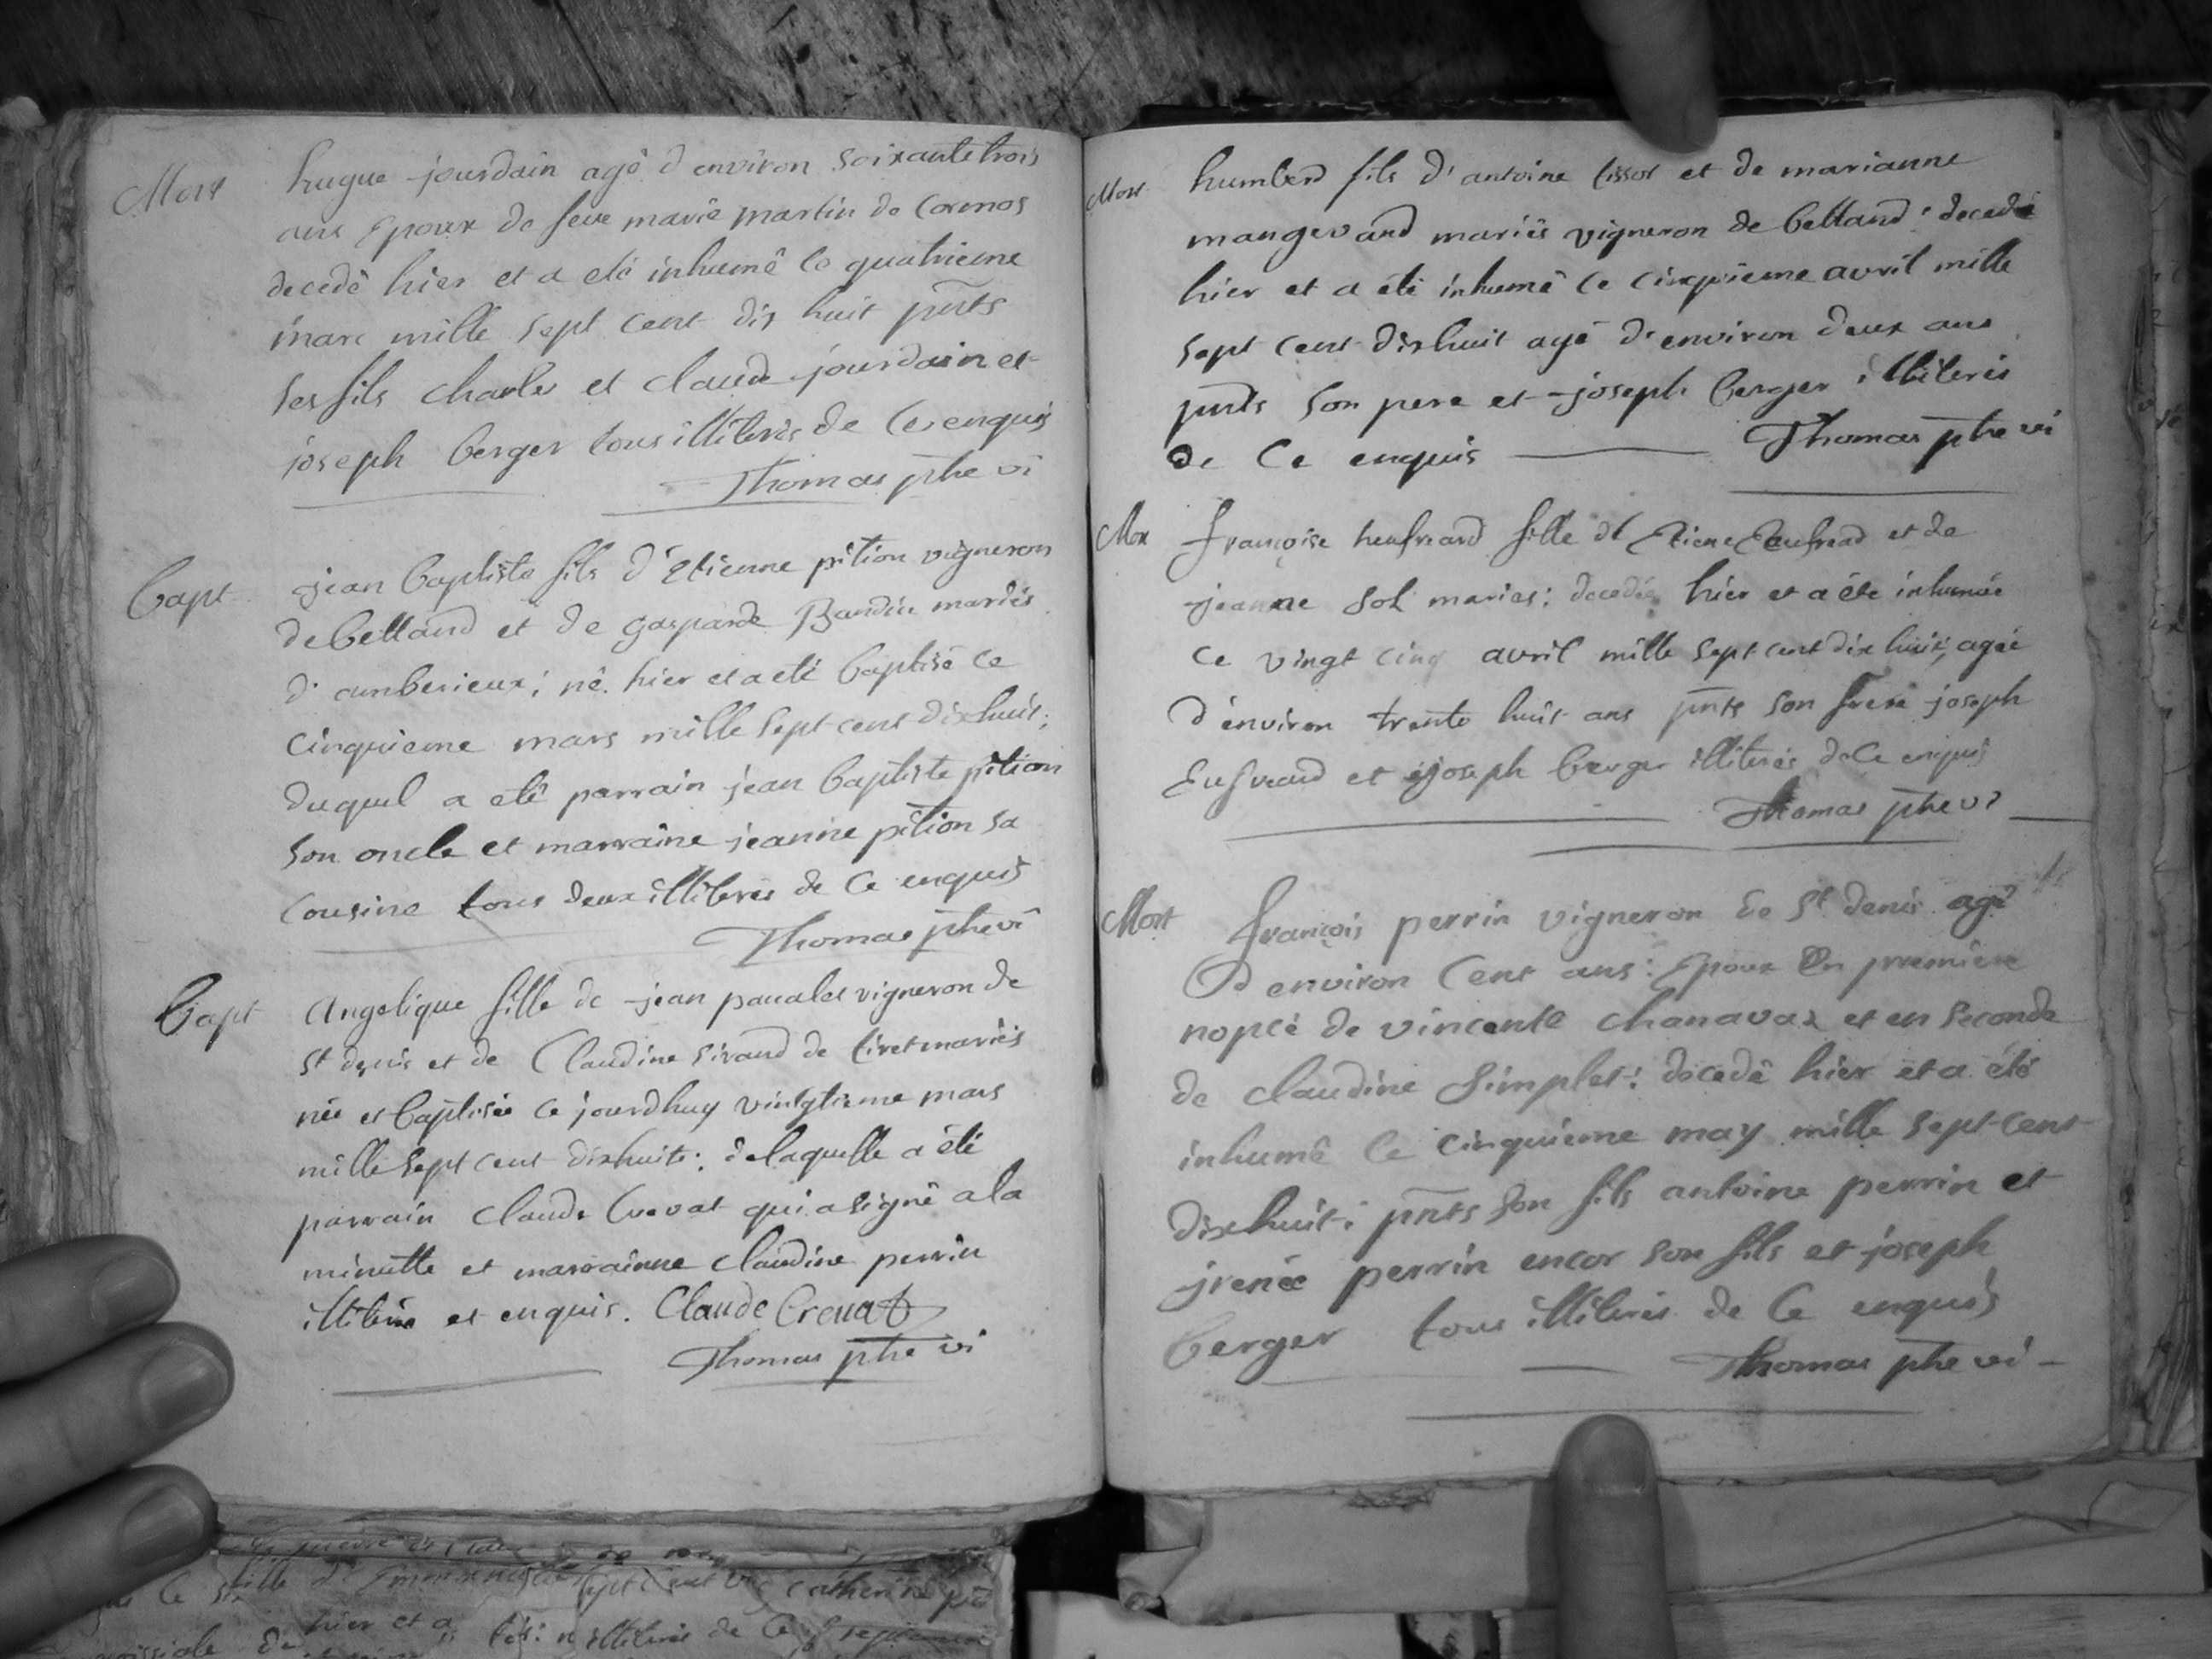 Mort hugue jourdain agé d environ soixante trois
ans Epoux de feue marie martin de Cormos
decedé hier et a eté inhumé le quatrieme
marc mille sept cent dix huit pnts
ses fils charles et claude jourdain et
joseph berger tous illiteres de ce enquis
Thomas ptre vi
bapt jean baptiste fils d'Etienne pition vigneron
de bettand et de gasparde Baudin mariés
d'amberieux; né hier et a eté baptisé ce
cinquieme mars mille sept cent dixhuit;
duquel a eté parrain jean baptiste pition
son oncle et marraine jeanne pition sa
cousine tous deux illiteres de ce enquis
Thomas ptre vi
bapt Angelique fille de jean paualet vigneron de
st denis et de Claudine sivaud de tiret mariés
née et baptisée ce jourdhuy vintgtieme mars
mille sept cent dixhuite; de laquelle a été
parrain Claude Crevat qui a signé a la
minutte et marrainne claudine perrin
illiterée et enquis. Claude Creuat
Thomas ptre vi
Mort humberd fils d'antoine tissot et de marianne
mangevand mariés vigneron de bettand: decedé
hier et a été inhumé ce cinquieme avril mille
sept cent dixhuit agé d'environ deux ans
pnts son pere et joseph berger illiteres
de ce enquis Thomas ptre vi
Mor françoise heufreard fille d' Etiene Eeufread et de
jeanne sol mariés: decedée hier et a éte inhumée
ce vingt cinq avril mille sept cent dix huit, agée
d'environ trente huit ans pnts son frere joseph
Eufreard et joseph berger illiterés de ce enquis
Thomas ptre vi
Mort françois perrin vigneron de st denis agé
d environ cent ans: Epoux En premiere
nopce de vincente chanavaz et en seconde
de claudine simplet: décedé hier et a été
inhumé le cinquieme may mille sept cent
dixhuit; pnts son fils antoine perrin et
jrenée perrin encor son fils et joseph
berger tous illiteres de ce enquis
Thomas ptre vi
hier et a